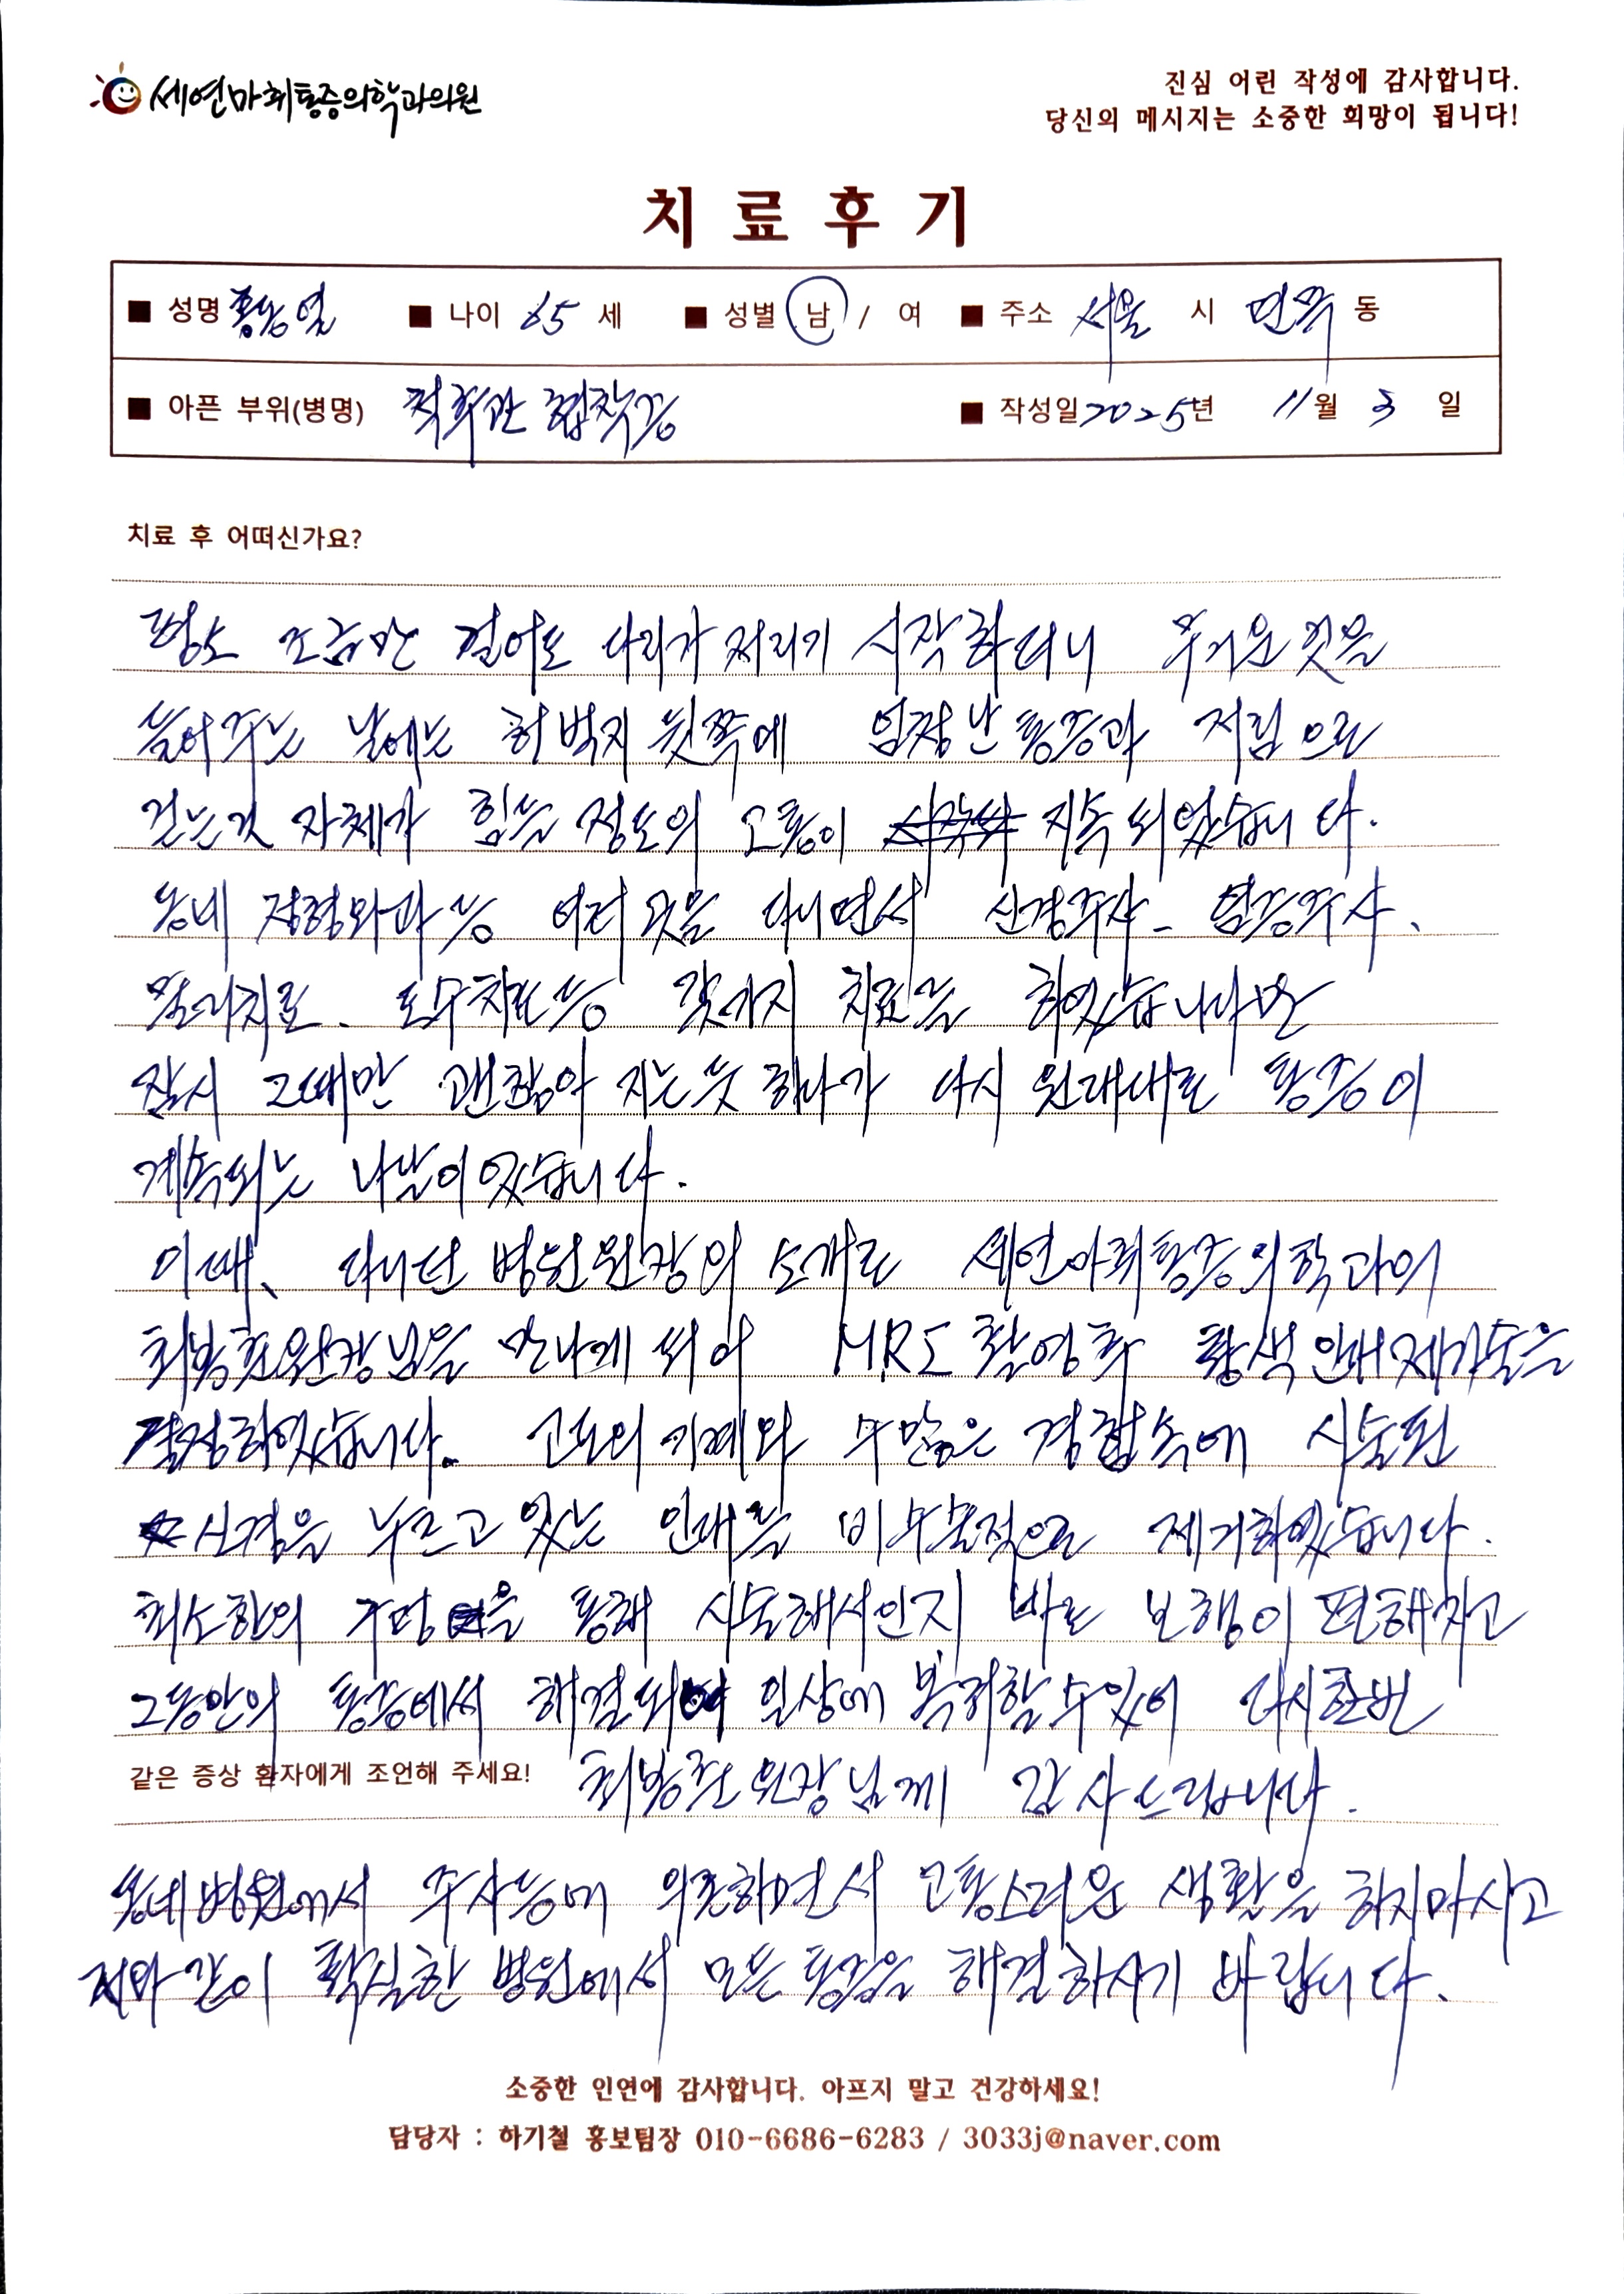 세연마취통증의학과의원
진심 어린 작성에 감사합니다.
당신의 메시지는 소중한 희망이 됩니다!
치료후기
■ 성명 홍동열 ■ 나이 65 세 ■ 성별 남 / 여 ■ 주소 서울 시 면목 동
■ 아픈 부위(병명) 척추관 협착증 ■ 작성일 2025년 11월 3 일
치료 후 어떠신가요?
평소 조금만 걸어도 다리가 저리기 시작하더니 무거운 것을
들어주는 날에는 허벅지 뒷쪽에 엄청난 통증과 저림으로
걷는것 자체가 힘들 정도의 고통이 지속되었습니다.
동네 정형외과 등 여러 곳을 다니면서 신경주사, 염증주사,
물리치료, 도수치료 등 갖가지 치료를 하였습니다만
잠시 그때만 괜찮아 지는듯 하다가 다시 원래대로 통증이
계속되는 나날이었습니다.
이때, 다니던 병원원장의 소개로 세연마취통증의학과의
최봉춘원장님을 만나게 되어 MRI 촬영후 황색인대제거술을
결정하였습니다. 고도의 기계와 수많은 경험속에 시술된
신경을 누르고 있는 인대를 비수술적으로 제거하였습니다.
최소한의 구멍을 통해 시술해서인지 바로 보행이 편해지고
그동안의 통증에서 해결되어 일상에 복귀할수있어 다시한번
같은 증상 환자에게 조언해 주세요! 최봉춘 원장님께 감사드립니다.
동네병원에서 주사등에 의존하면서 고통스러운 생활을 하지마시고
저와 같이 확실한 병원에서 모든 통증을 해결하시기 바랍니다.
소중한 인연에 감사합니다. 아프지 말고 건강하세요!
담당자 : 하기철 홍보팀장 010-6686-6283 / 3033j@naver.com